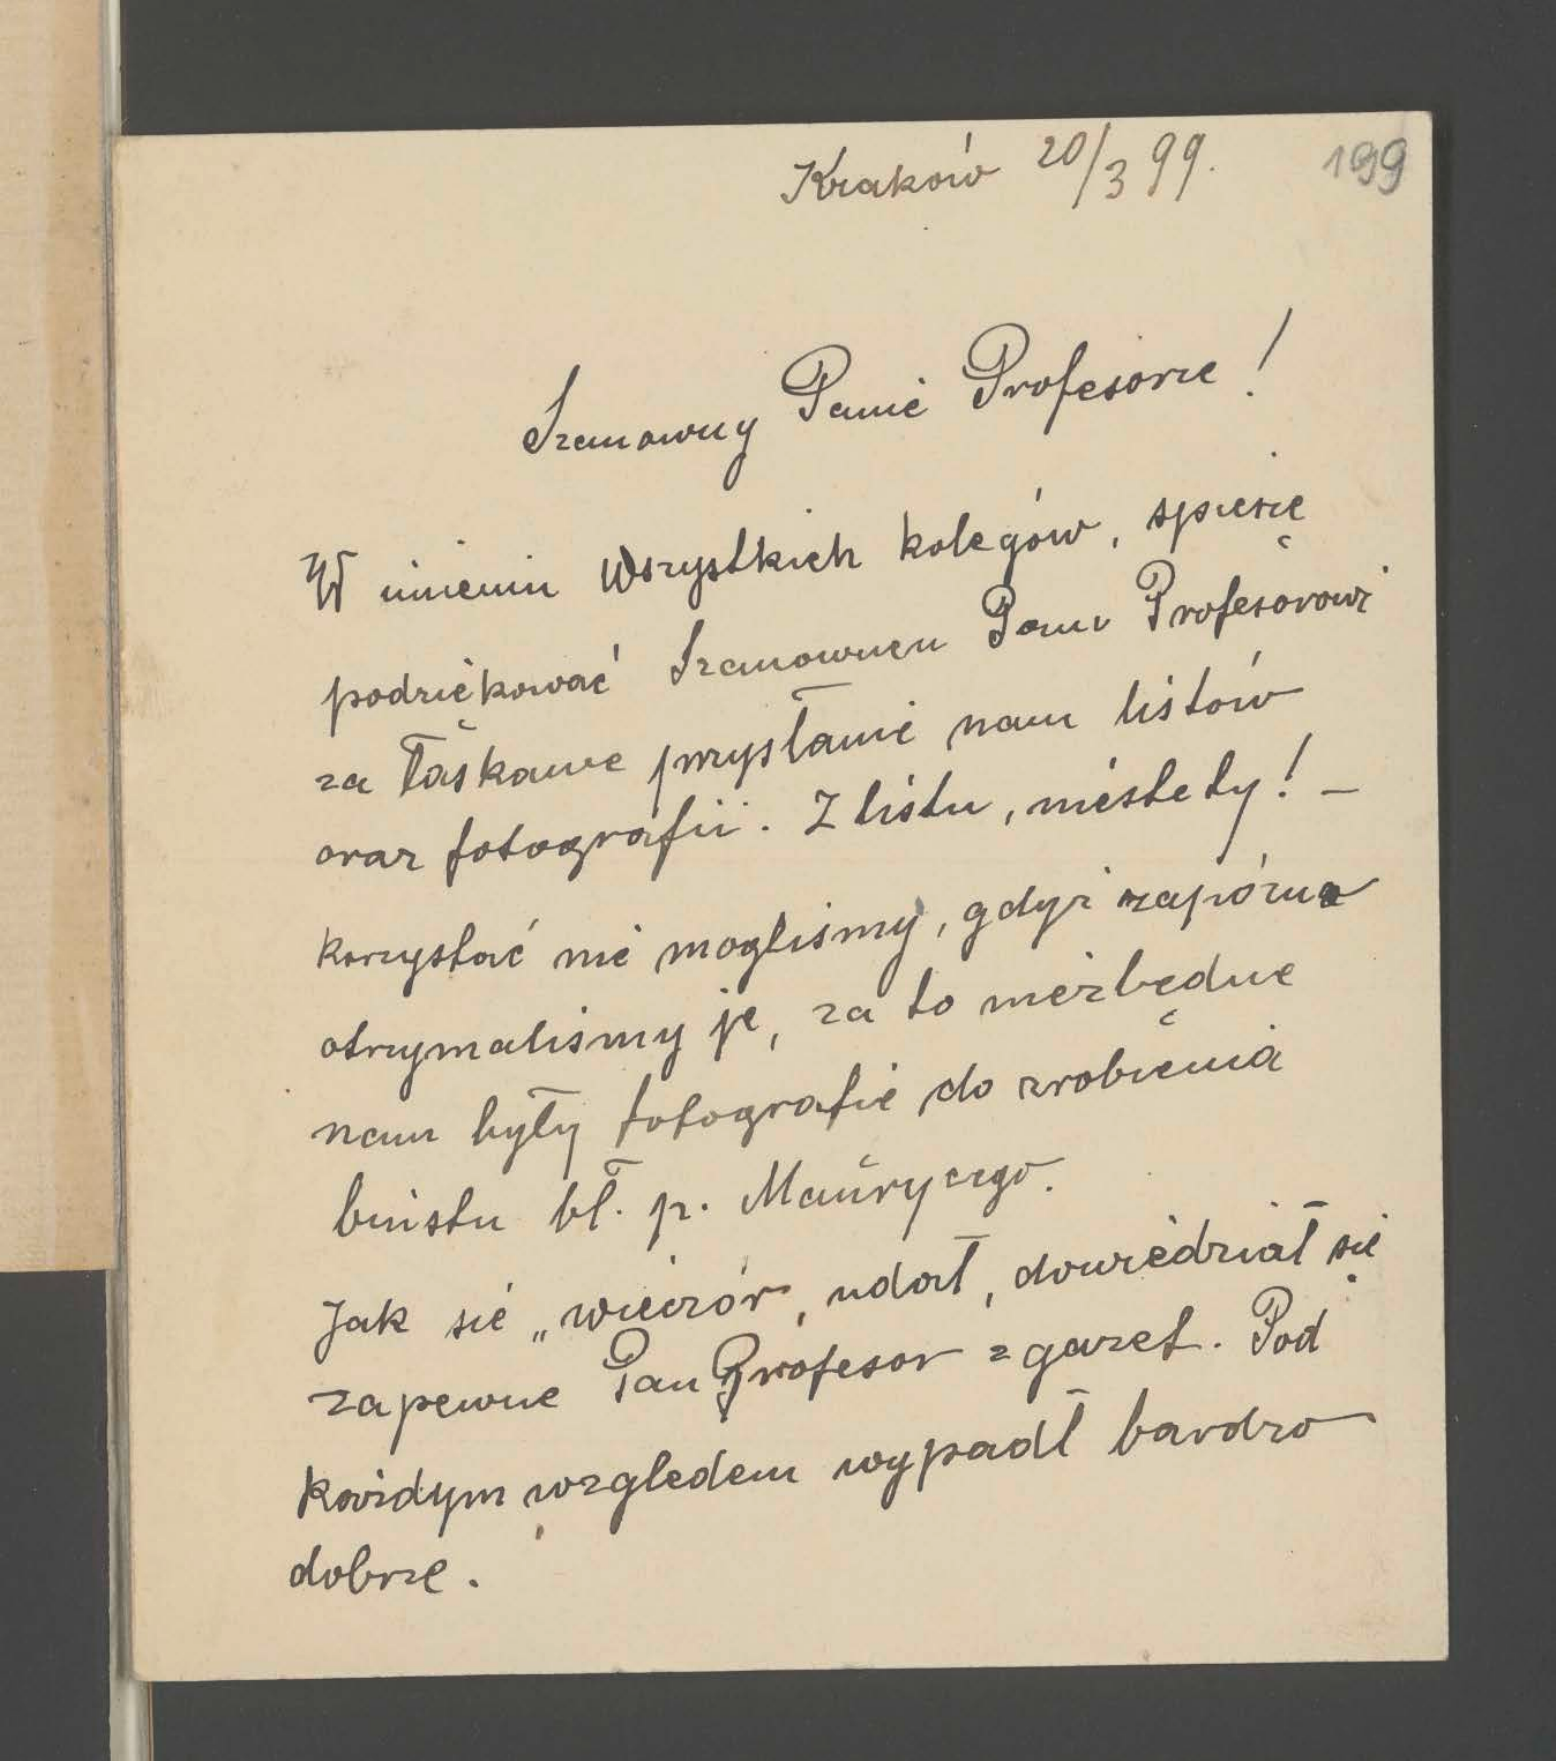 Kraków 20/3 99.
199
Szanowny Panie Profesorze!
W imieniu Wszystkich kolegów, spieszę
podziękować Szanownemu Panu Profesorowi
za łaskawe przysłanie nam listów
oraz fotografii. Z listu, niestety! –
korzystać nie mogliśmy, gdyż zapóźno
otrzymaliśmy je, za to niezbędne
nam były fotografie do zrobienia
biustu bł. p. Maurycego.
Jak się „wieczór„ udał, dowiedział się
zapewne Pan Profesor z gazet. Pod
każdym względem wypadł bardzo
dobrze.